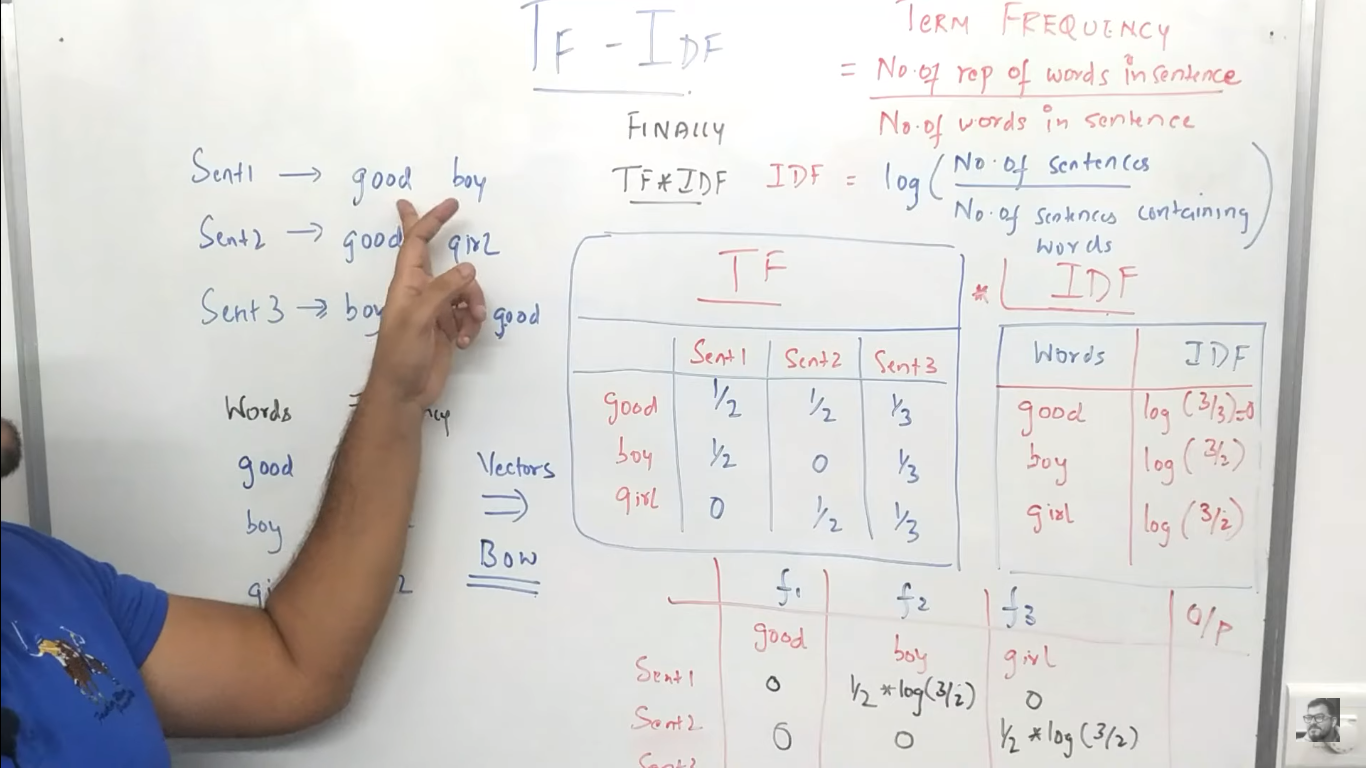 TF-IDF
TERM FREQUENCY
= No. of rep of words in sentence
No. of words in sentence
FINALLY
TF*IDF
IDF = log( No. of sentences
No. of sentences containing
words )
Sent1 → good boy
Sent2 → good girl
Sent 3 → boy good
Words
good
boy
2
Vectors
⇒
BOW
TF
Sent1 Sent2 Sent3
good 1/2 1/2 1/3
boy 1/2 0 1/3
girl 0 1/2 1/3
* IDF
Words IDF
good log (3/3)=0
boy log (3/2)
girl log (3/2)
f1 f2 f3 O/P
good boy girl
Sent1 0 1/2 *log(3/2) 0
Sent2 0 0 1/2 *log(3/2)